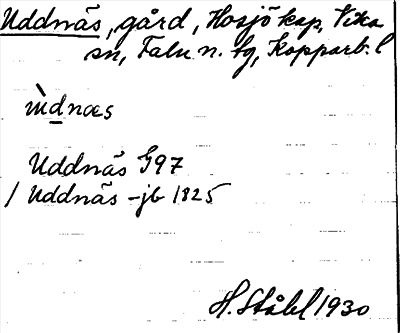 Uddnäs, gård, Hosjö kap, Vika
sn, Falu n. tg, Kopparb. l
Uddnäs G97
/ Uddnäs -jb 1825
H. Ståhl 1930